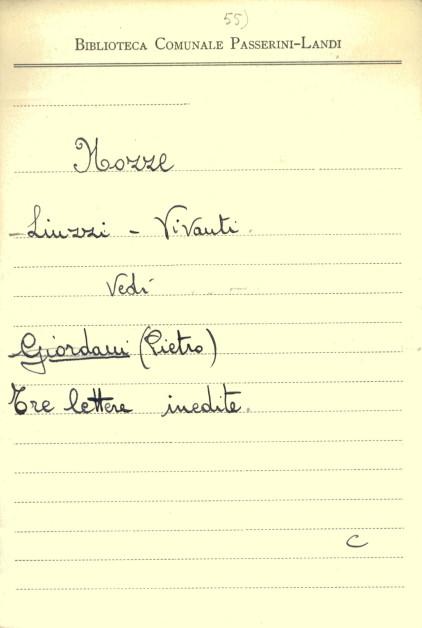 55)
BIBLIOTECA COMUNALE PASSERINI-LANDI
Nozze
- Liuzzi - Vivanti.
Vedi
Giordani (Pietro)
Tre lettere inedite.
C